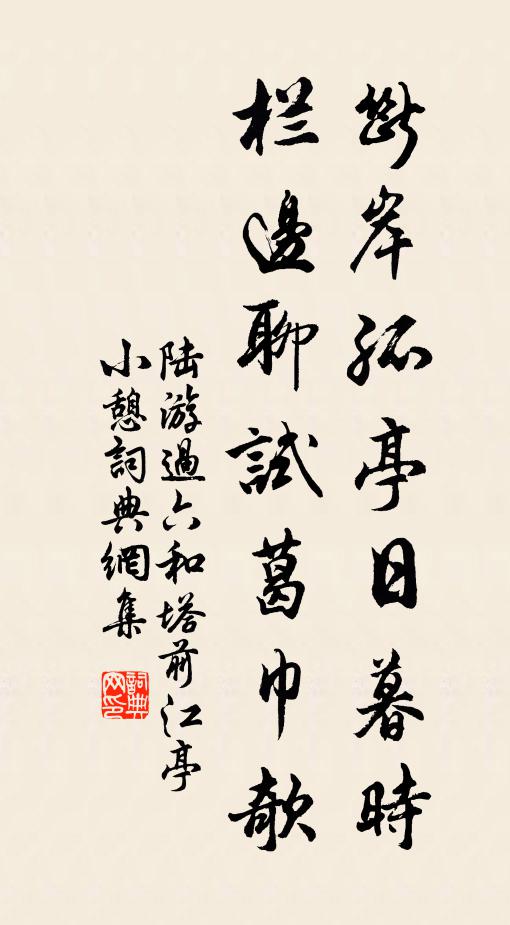 斷岸孤亭日暮時
栏邊聊試葛巾欹
陆游過六和塔前江亭
小憩詞典網集
詞典网印